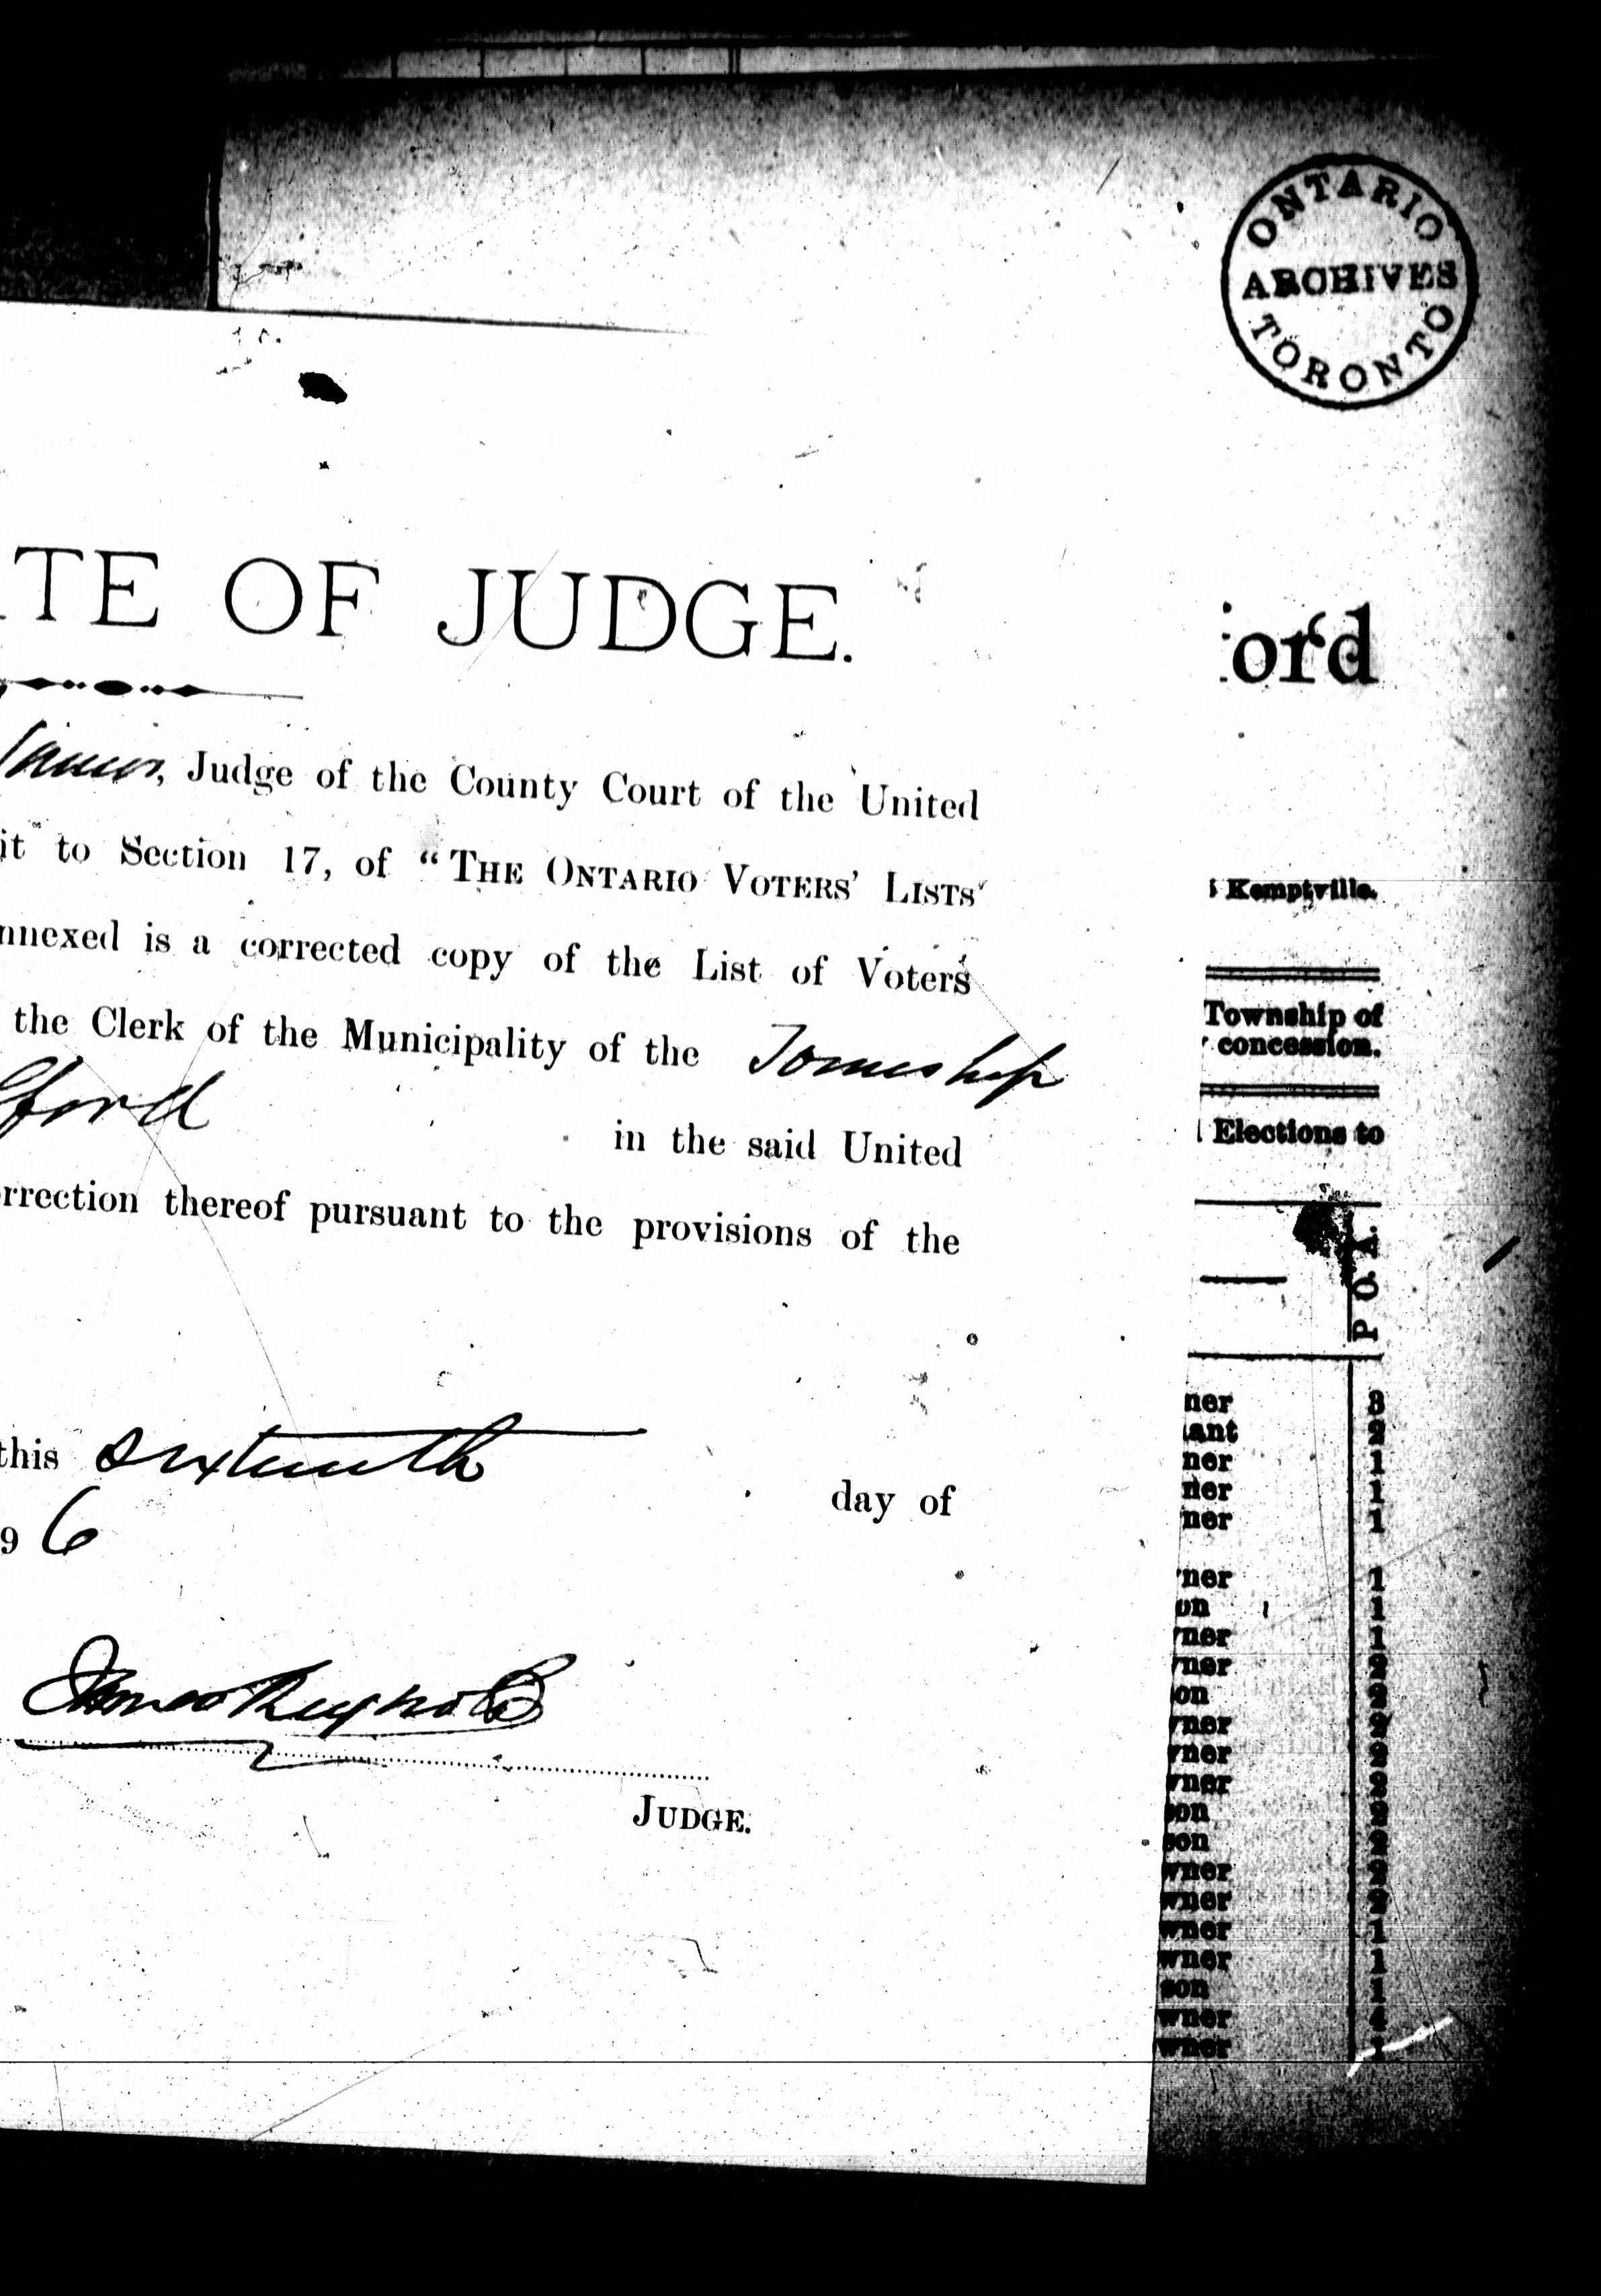 ONTARIO
ARCHIVES
TORONTO
TE OF JUDGE.
Judge of the County Court of the United
it to Section 17, of "THE ONTARIO VOTERS' LISTS
nnexed is a corrected copy of the List of Voters
the Clerk of the Municipality of the Township
ford
in the said United
rrection thereof pursuant to the provisions of the
this sixteenth
day of
9 6
James Reynolds
JUDGE.
ord
Kemptville.
Township of
concession.
Elections to
P O. I.
ner 3
ant 2
ner 1
ner 1
ner 1
ner 1
on 1
ner 1
ner 2
on 2
ner 2
ner 2
ner 2
on 2
son 2
wner 2
wner 2
wner 1
wner 1
son 1
wner
wner 1